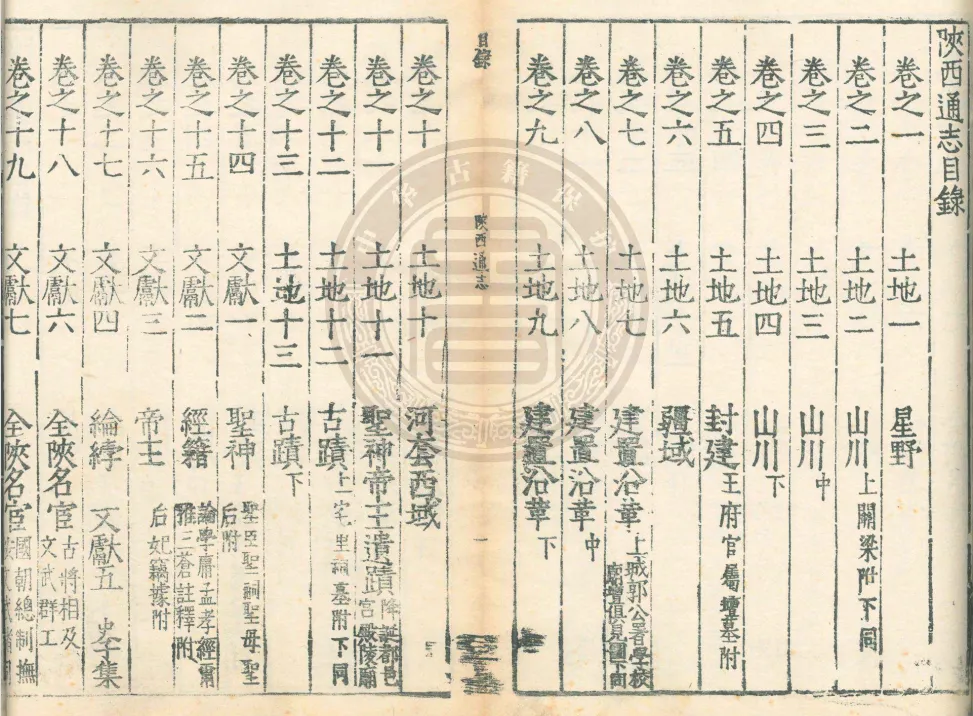 陝西通志目錄
卷之一 土地一 星野
卷之二 土地二 山川上 關梁附下同
卷之三 土地三 山川中
卷之四 土地四 山川下
卷之五 土地五 封建 王府官屬壇墓附
卷之六 土地六 疆域
卷之七 土地七 建置沿革上 城郭公署學校廟壇俱見圖下同
卷之八 土地八 建置沿革中
卷之九 土地九 建置沿革下
目錄 陝西通志 一
卷之十 土地十 河套西域
卷之十一 土地十一 聖神帝王遺蹟 降誕都邑宮殿陵廟
卷之十二 土地十二 古蹟上 宅里祠墓附下同
卷之十三 土地十三 古蹟下
卷之十四 文獻一 聖神 聖臣聖嗣聖母聖后附
卷之十五 文獻二 經籍 論學庸孟孝經爾雅三蒼註釋附
卷之十六 文獻三 帝王 后妃籍據附
卷之十七 文獻四 綸綍 文獻五 史子集
卷之十八 文獻六 全陝名宦 古將相及文武群工
卷之十九 文獻七 全陝名宦 國朝總制撫